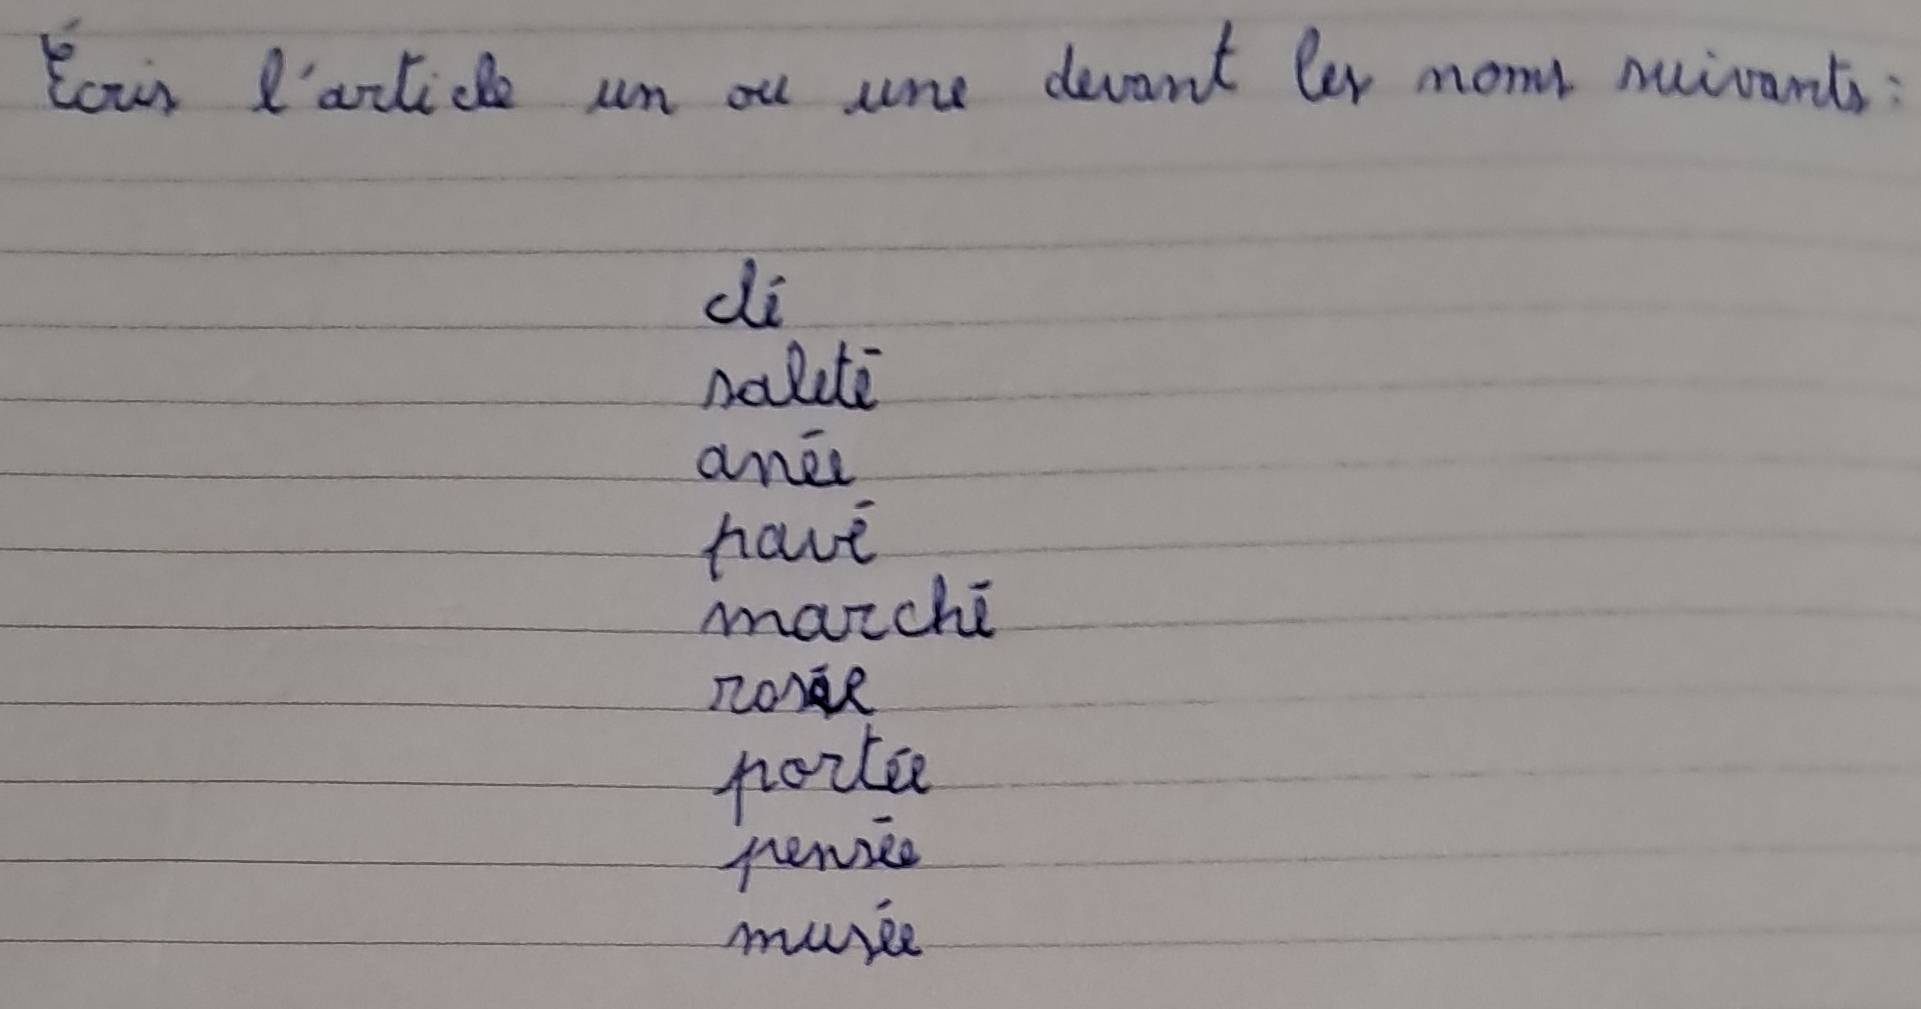 Écris l'article un ou une devant les noms suivants:
clé
saleté
anée
pavé
marché
rosée
portée
pensée
musée